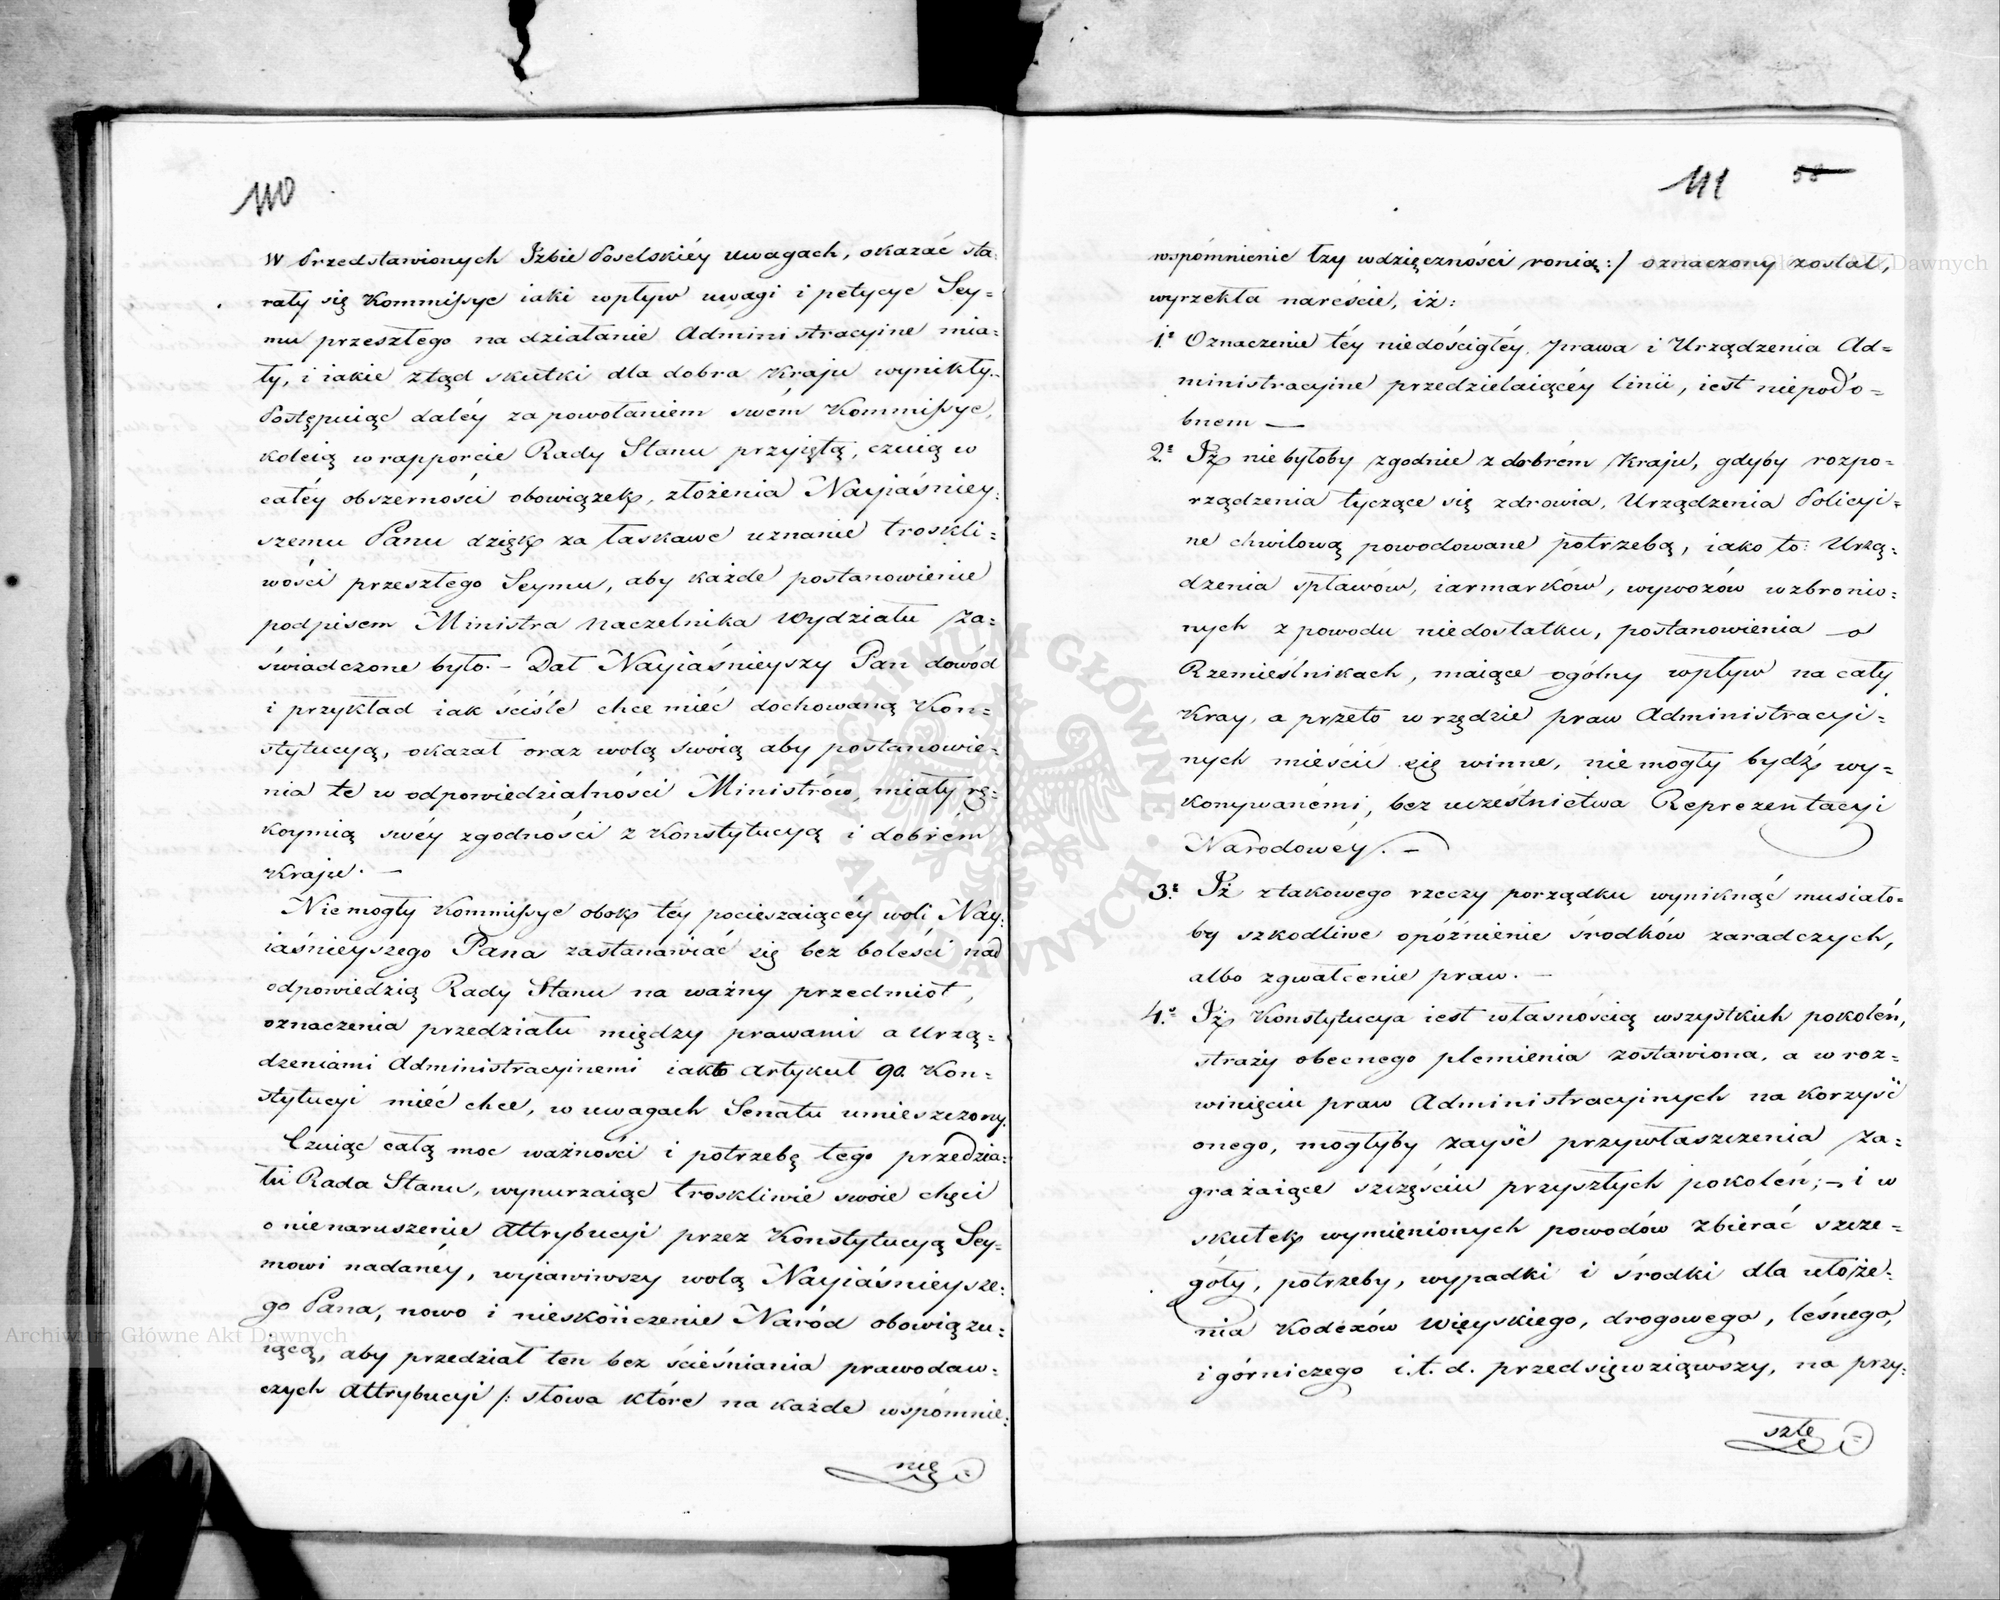 110
W Przedstawionych Izbie Poselskiéy uwagach, okazać sta:
rały się Kommissye iaki wpływ uwagi i petycye Sey=
mu przeszłego na działanie Administracyine mia=
ły, i iakie ztąd skutki dla dobra Kraju wynikły.-
Postępuiąc daléy za powołaniem swém Kommissye,
koleią w rapporcie Rady Stanu przyiętą, czuią w
całéy obszerności obowiązek, złożenia Nayjaśniey:
szemu Panu dzięk za łaskawe uznanie troskli=
wości przeszłego Seymu, aby każde postanowienie
podpisem Ministra Naczelnika Wydziału za=
świadczone było. - Dał Nayiaśnieyszy Pan dowód
i przykład iak ściśle chce mieć dochowaną Kon=
stytucyą, okazał oraz wolą swoią aby postanowie=
nia te w odpowiedzialności Ministrów, miały rę=
koymią swéy zgodności z Konstytucyą i dobrém
Kraju. -
Niemogły Kommissye obok téy pocieszaiącéy woli Nay:
iaśnieyszego Pana zastanawiać się bez boleści nad
odpowiedzią Rady Stanu na ważny przedmiot,
oznaczenia przedziału między prawami a Urzą=
dzeniami Administracyinemi iak to Artykuł 90. Kon=
stytucyi mieć chce, w uwagach Senatu umieszczony.
Czuiąc całą moc ważności i potrzebę tego przedzia=
łu Rada Stanu, wynurzaiąc troskliwie swoie chęci
o nienaruszenie Attrybucyi przez Konstytucyą Sey=
mowi nadanéy, wyiawiwszy wolą Nayiaśnieysze=
go Pana, nowo i nieskończenie Naród obowiązu=
iącą, aby przedział ten bez ścieśniania prawodaw=
czych Attrybucyi /: słowa które na każde wspómnie=
nie
111 58
wspómnienie łzy wdzięczności ronią :/ oznaczony został,
wyrzekła nareście, iż:
1. Oznaczenie téy niedościgłéy prawa i Urządzenia Ad=
ministracyine przedzielaiącéy linii, iest niepodo=
bnem —
2. Iż niebyłoby zgodnie z dobrém Kraju, gdyby rozpo=
rządzenia tyczące się zdrowia, Urządzenia Policyi=
ne chwilową powodowane potrzebą, iako to: Urzą=
dzenia spławów, iarmarków, wywozów wzbronio=
nych z powodu niedostatku, postanowienia o
Rzemieślnikach, maiące ogólny wpływ na cały
Kray, a przeto w rzędzie praw Administracyi=
nych mieścić się winne, niemogły bydź wy=
konywanémi, bez uczéstnictwa Reprezentacyi
Narodowéy. -
3. Iż z takowego rzeczy porządku wyniknąć musiało=
by szkodliwe opóźnienie środków zaradczych,
albo zgwałcenie praw. -
4. Iż Konstytucya iest własnością wszystkich pokoleń,
straży obecnego plemienia zostawiona, a w roz=
winięciu praw Administracyinych na korzyść
onego, mogłyby zayść przywłaszczenia za=
grażaiące szczęściu przyszłych pokoleń; - i w
skutek wymienionych powodów zbierać szcze=
góły, potrzeby, wypadki i środki dla ułoże=
nia Kodexów Wieyskiego, drogowego, leśnego,
i górniczego i.t.d. przedsięwziąwszy, na przy=
szłe
Archiwum Główne Akt Dawnych
Archiwum Główne Akt Dawnych
ARCHIWUM GŁÓWNE · AKT DAWNYCH ·